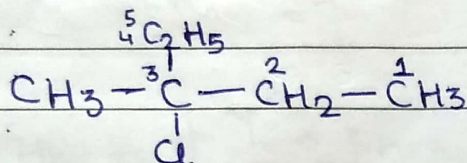 5
4 C2H5
CH3 — 3C — 2CH2 — 1CH3
Cl